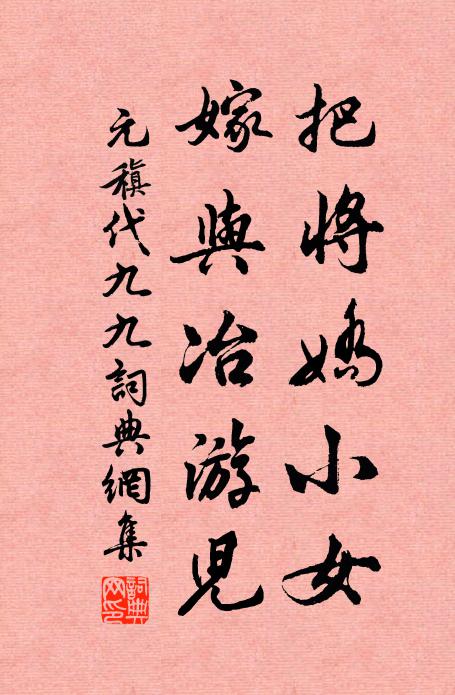 把將嬌小女
嫁與冶游兒
元稹代九九詞典網集
詞典
网印